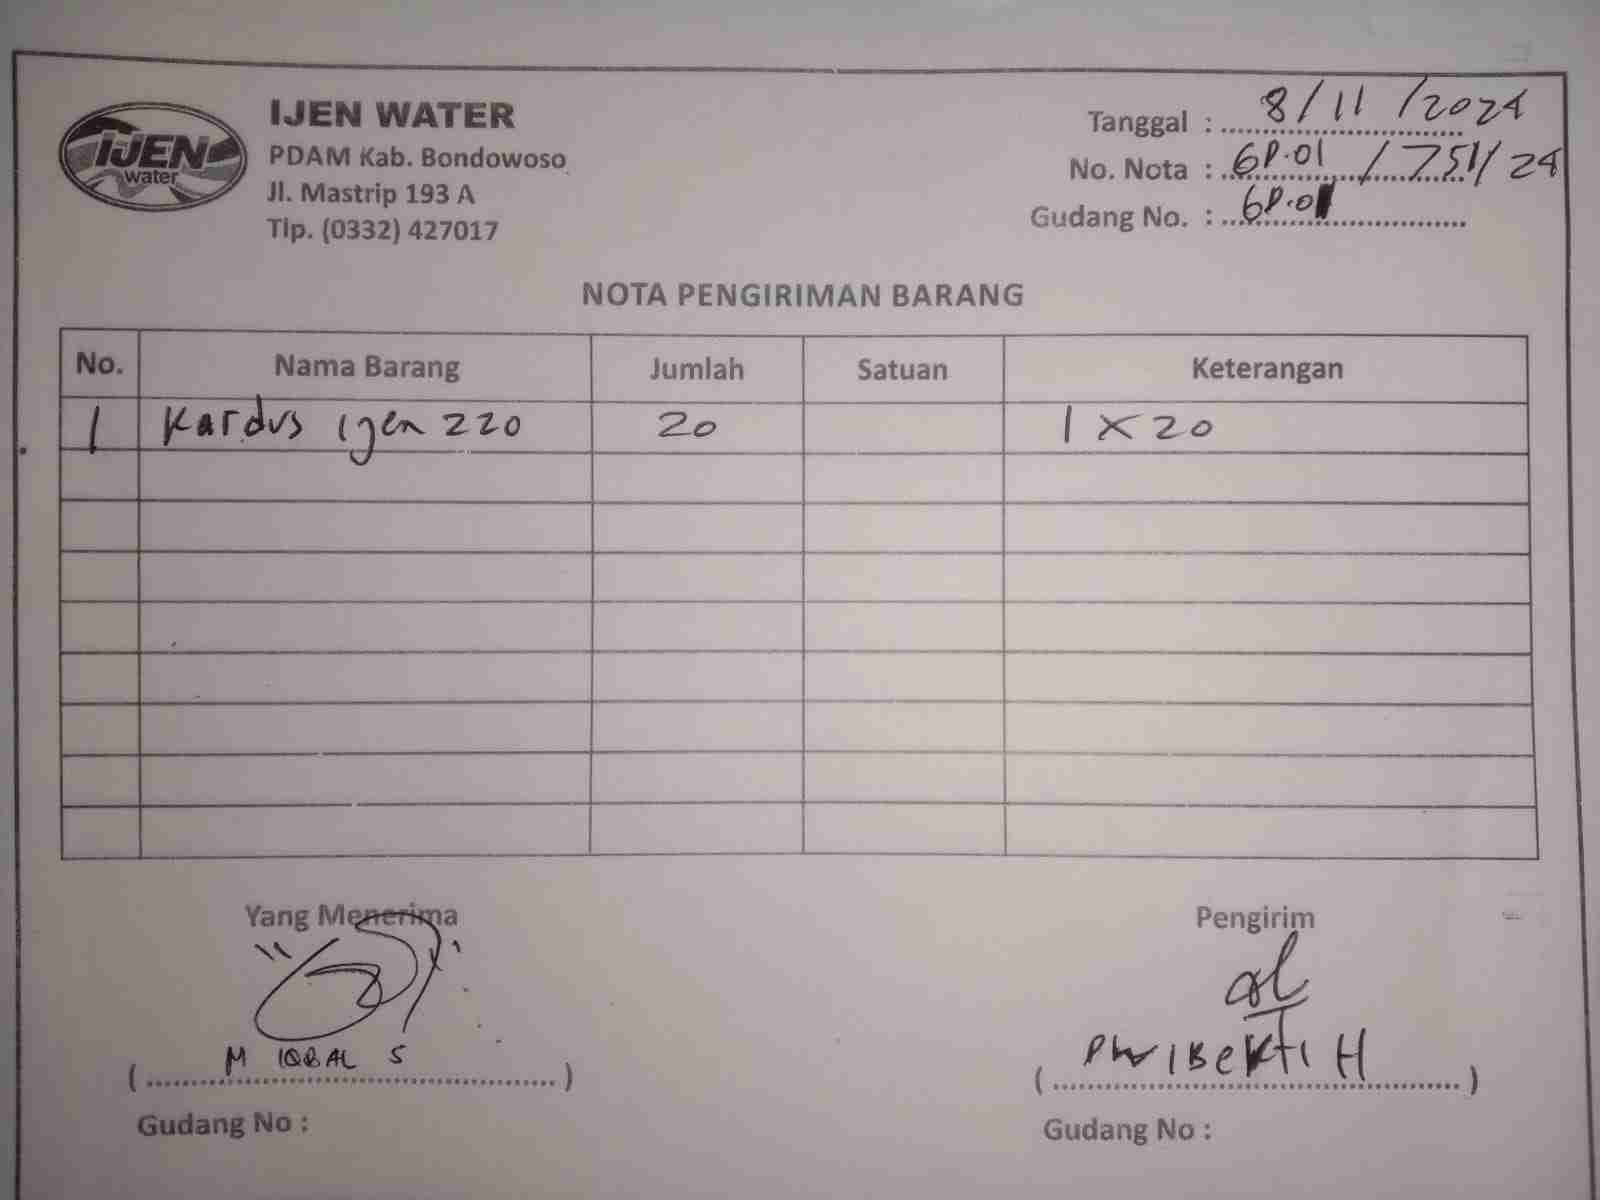 IJEN
water
IJEN WATER
PDAM Kab. Bondowoso
Jl. Mastrip 193 A
Tlp. (0332) 427017
Tanggal : 8/11/2024
No. Nota : GP.01 / 751/24
Gudang No. : GP.01
NOTA PENGIRIMAN BARANG
No. Nama Barang Jumlah Satuan Keterangan
1 Kardus ijen 220 20 1 x 20
Yang Menerima Pengirim
( M IQBAL S ) ( H )
Gudang No : Gudang No :